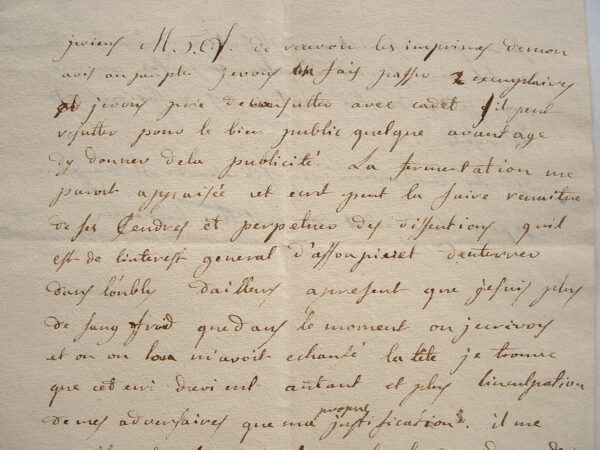 jeviens M. T. C. f. de recevoir les imprimes demon
avis au peuple jevous en fais passer 2 exemplaires
et jevous prie deconsulter avec cadet s'il peut
resulter pour le bien public quelque avantage
dy donner dela publicité. La fermentation me
paroit appaisée et ecrit peut la faire renaitre
de ses Cendres et perpetuer des dissentions quil
est de linterest general d'assoupir et denterrer
dans loubly dailleurs apresent que jesuis plus
de sang froid quedans le moment ou jecrivois
et ou on m'avoit echauffé la tête je trouve
que cet ecri devient autant et plus linculpation
demes adversaires que ma propre justification. il me